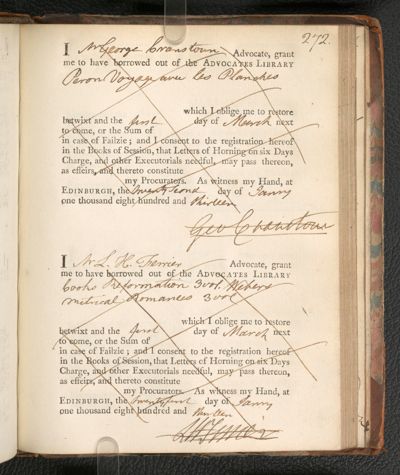 272.
I Mr George Cranstoun Advocate, grant
me to have borrowed out of the ADVOCATES LIBRARY
Peron Voyage avec les Planches
which I oblige me to restore
betwixt and the first day of March next
to come, or the Sum of
in case of Failzie; and I consent to the registration hereof
in the Books of Session, that Letters of Horning on six Days
Charge, and other Executorials needful, may pass thereon,
as effeirs, and thereto constitute
my Procurators. As witness my Hand, at
EDINBURGH, the twenty second day of Janry
one thousand eight hundred and thirteen
Geo Cranstoun
I Mr L. H. Ferrier Advocate, grant
me to have borrowed out of the ADVOCATES LIBRARY
Cooks Reformation 3 vol. Webers
metrical Romances 3 vol
which I oblige me to restore
betwixt and the first day of March next
to come, or the Sum of
in case of Failzie; and I consent to the registration hereof
in the Books of Session, that Letters of Horning on six Days
Charge, and other Executorials needful, may pass thereon,
as effeirs, and thereto constitute
my Procurators. As witness my Hand, at
EDINBURGH, the day of Janry
one thousand eight hundred and thirteen
L H Ferrier